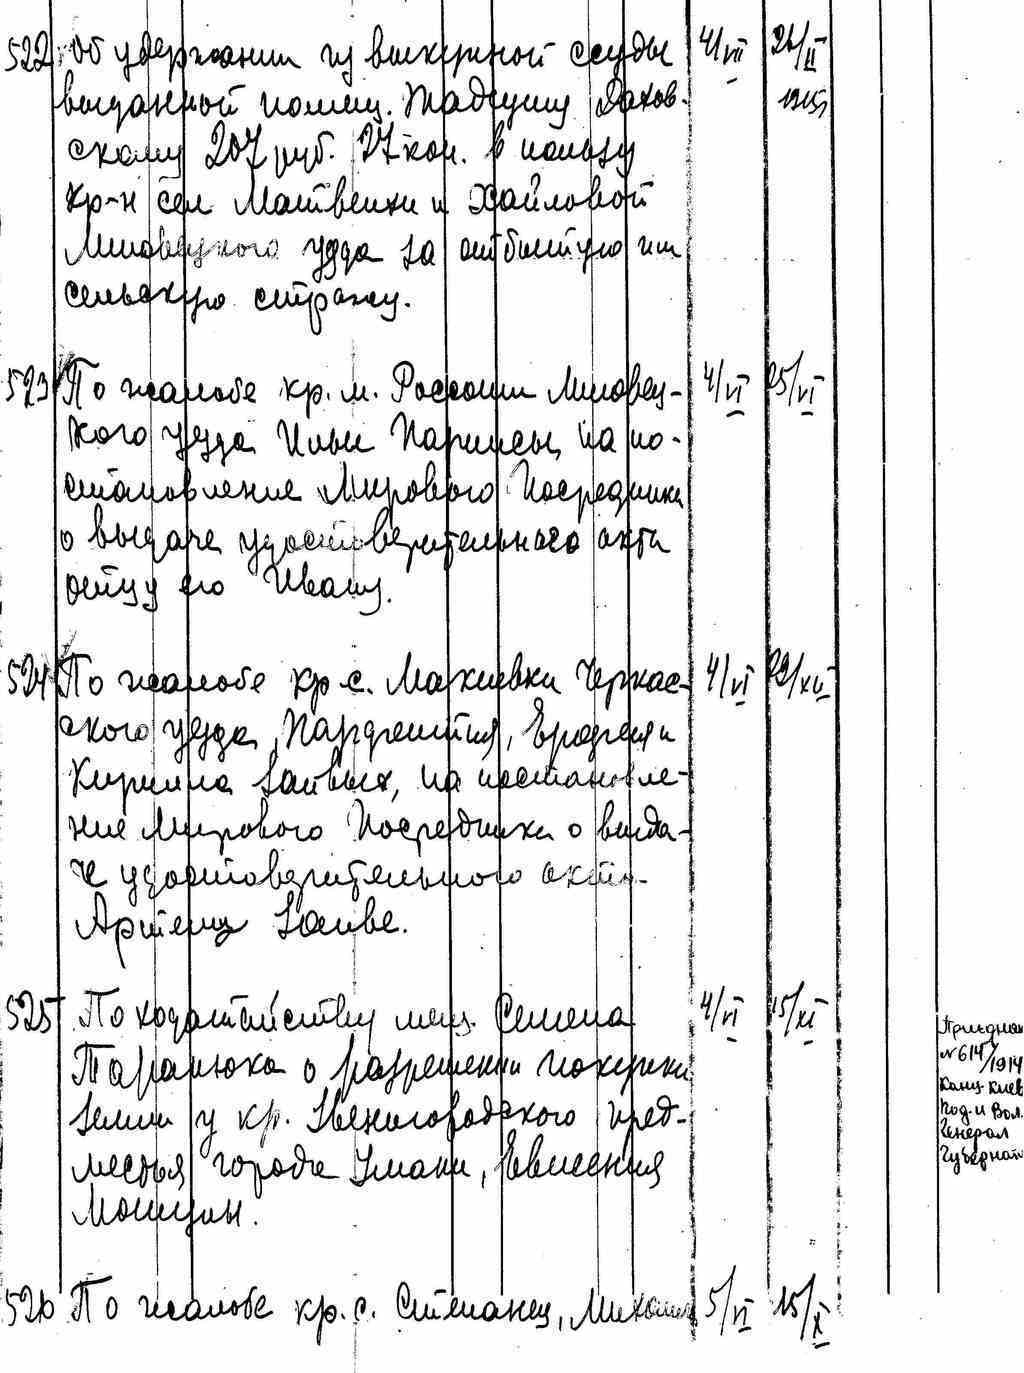 522 Об удержании из выкупной ссуды 4/VII 21/II
выданной помещ. Тадеушу Дахов- 1915г
скому 207 руб. 27 коп. в пользу
кр-н сел Матвеихи и Хайловой
Липовецкого уезда за отбытую им
сельскую стражу.
523 По жалобе кр. м. Россоши Липовец- 4/VI 25/VI
кого уезда Ильи на по-
становление Мирового Посредника
о выдаче удостоверительного акта
отцу его Ивану.
524 По жалобе кр. с. Макиевки Черкас- 4/VI 22/XII
ского уезда, Парфентия, и
Кирилла Заивых, на постановле-
ние Мирового Посредника о выда-
че удостоверительного акта
Артему Заиве.
525 По ходатайству мещ. Семена 4/VI 15/XI
Таранюка о разрешении покупки
земли у кр. Звенигородского пред-
местья города Умани, Евмения
Мошури.
Приедион
№614/1914
Канц. Киев
Под. и Вол.
Генерал
Губернат
526 По жалобе кр. с. Степанец, 5/VI 15/X